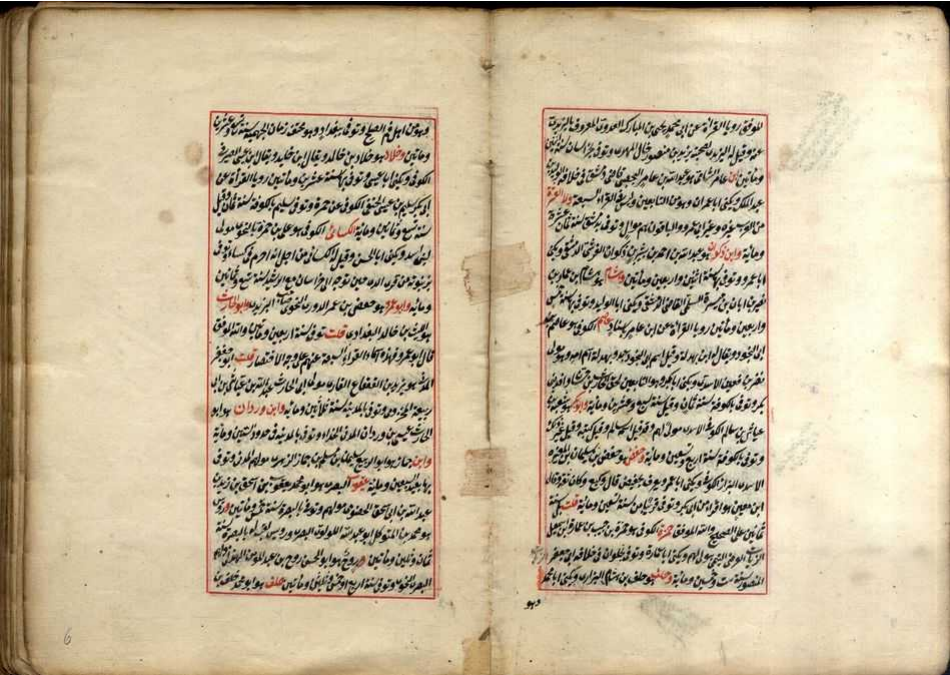 الموفق رويا القراءة عن ابى محمد يحيى بن المبارك العدوى المعروف باليزيدى
عنه وقيل له اليزيدى لصحبته يزيد بن منصور خال المهدى وتوفى بخراسان سنة اثنين
ومأتين ابن عامر الشامى هو عبد الله بن عامر اليحصبى قاضى دمشق فى خلافة الوليد بن
عبد الملك ويكنى ابا عمران وهو من التابعين وليس فى القراء السبعة
من العرب غيره وغير ابى عمرو والباقون هم موال وتوفى بدمشق سنة ثمان عشرة
ومائة وابن ذكوان هو عبد الله بن احمد بن بشير بن ذكوان القرشى الدمشقى ويكنى
ابا عمرو وتوفى بها سنة اثنتين واربعين ومأتين وهشام هو هشام بن عمار بن
نصير بن ابان بن ميسرة السلمى القاضى الدمشقى ويكنى ابا الوليد وتوفى بها سنة خمس
واربعين ومأتين رويا القراءة عن ابن عامر باسناد عاصم الكوفى هو عاصم بن
ابى النجود ويقال له ابن بهدلة وقيل اسم ابى النجود عبد وبهدلة اسم امه وهو مولى
نصر بن قعين الاسدى ويكنى ابا بكر وهو من التابعين
وتوفى بالكوفة سنة ثمان وقيل سنة سبع وعشرين ومائة وابو بكر هو شعبة بن
عياش بن سالم الكوفى الاسدى مولى لهم وقيل اسمه سالم وقيل كنيته وقيل غير ذلك
وتوفى بالكوفة سنة اربع وتسعين ومائة وحفص هو حفص بن سليمان بن المغيرة
الاسدى البزاز الكوفى ويكنى ابا عمر ويعرف بحفيص قال وكيع وكان ثقة وقال
ابن معين هو اقرأ من ابى بكر وتوفى قريبا من سنة تسعين ومائة قلت سنة
ثمانين على الصحيح والله الموفق حمزة الكوفى هو حمزة بن حبيب بن عمارة بن اسمعيل
الزيات الفرضى التيمى مولى لهم ويكنى ابا عمارة وتوفى بحلوان فى خلافة ابى جعفر
المنصور سنة ست وخمسين ومائة وخلف هو خلف بن هشام البزار ويكنى ابا محمد
وهو
وهو من اهل فم الصلح وتوفى ببغداد وهو مختف زمان الجهمية سنة تسع وعشرين
ومأتين وخلاد هو خلاد بن خالد ويقال ابن خليد ويقال ابن عيسى الصيرفى
الكوفى ويكنى ابا عيسى وتوفى بها سنة عشرين ومأتين رويا القراءة عن
سليم بن عيسى الحنفى الكوفى عن حمزة وتوفى سليم بالكوفة سنة ثمان وقيل
سنة تسع وثمانين ومائة الكسائى الكوفى هو على بن حمزة النحوى مولى
لبنى اسد ويكنى ابا الحسن وقيل له الكسائى من اجل انه احرم فى كساء توفى
برنبوية من قرى الرى حين توجه الى خراسان مع الرشيد سنة تسع وثمانين
ومائة وابو عمرو هو حفص بن عمر الدورى النحوى صاحب اليزيدى وابو الحارث
هو الليث بن خالد البغدادى قلت توفى سنة اربعين ومأتين والله الموفق
قال ابو عمرو فهذه اسماء القراء السبعة عنهم على وجه الاختصار قلت ابو جعفر
المدنى هو يزيد بن القعقاع القارى مولى عبد الله بن عياش بن ابى
ربيعة المخزومى وتوفى بالمدينة سنة ثلاثين ومائة وابن وردان هو ابو
الحارث عيسى بن وردان المدنى الحذاء وتوفى بالمدينة فى حدود ستين ومائة
وابن جماز هو ابو الربيع سليمان بن مسلم بن جماز الزهرى مولاهم المدنى وتوفى
بها بعيد السبعين ومائة يعقوب البصرى هو ابو محمد يعقوب بن اسحق بن زيد بن
عبد الله بن ابى اسحق الحضرمى مولاهم وتوفى بالبصرة سنة خمس ومأتين ورويس
هو محمد بن المتوكل ابو عبد الله اللؤلؤى البصرى ورويس لقبه وتوفى بالبصرة سنة
ثمان وثلثين ومأتين وروح هو ابو الحسن روح بن عبد المؤمن الهذلى مولاهم
البصرى النحوى وتوفى سنة اربع او خمس وثلثين ومأتين خلف هو ابو محمد خلف بن
6